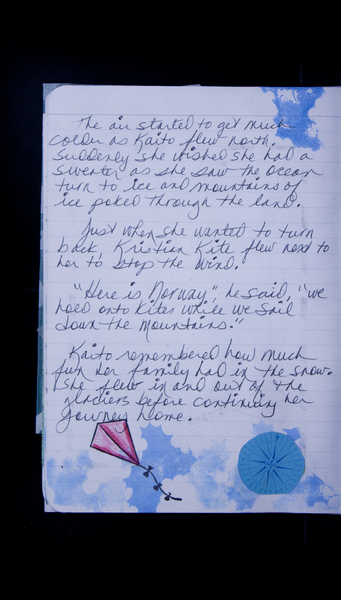 The air started to get much
colder as Kaito flew north.
Suddenly she wished she had a
sweater as she saw the ocean
turn to ice and mountains of
ice poked through the land.
Just when she wanted to turn
back, Kristian Kite flew next to
her to stop the wind.
"Here is Norway", he said, "we
hold onto kites while we sail
down the mountains."
Kaito remembered how much
fun her family had in the snow.
She flew in and out of the
glaciers before continuing her
journey home.